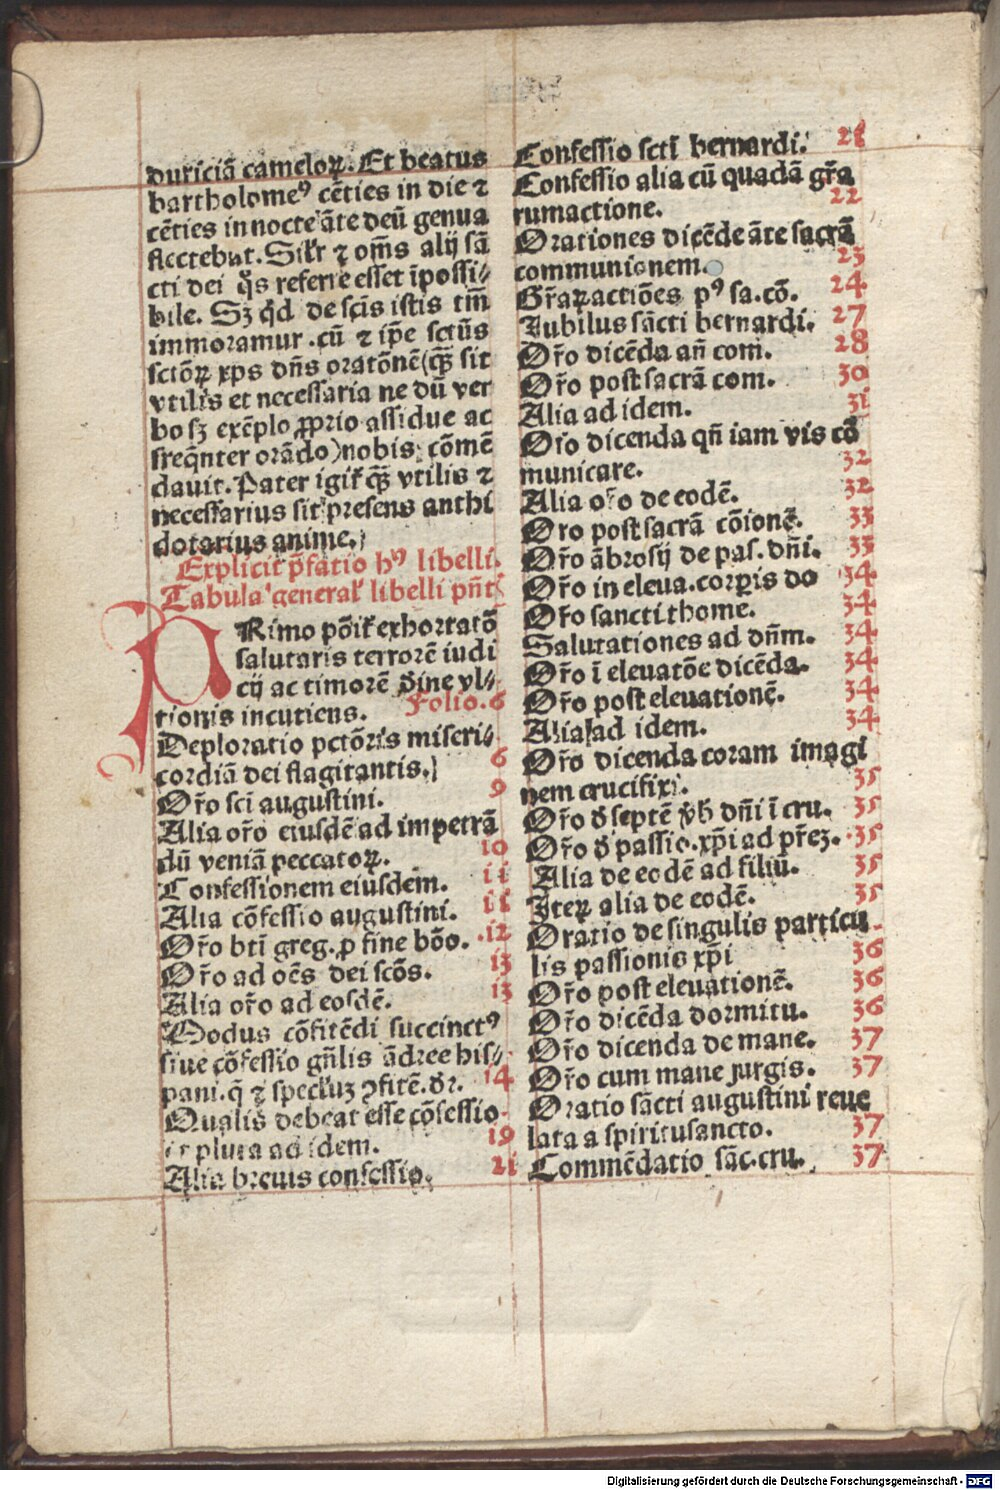 duriciā cameloꝝ. Et beatus
bartholomeꝰ cēties in die ⁊
cēties in nocte āte deū genua
flectebat. Silr̄ ⁊ om̄s alij sā
cti dei q̄s referre esset īpossi⸗
bile. Sꝫ qd̄ de scīs istis tm̄
immoramur. cū ⁊ ip̄e sctūs
sctōꝝ xp̄s dn̄s oratōnē (qꝫ̄ sit
vtilis et necessaria ne dū ver
bo sꝫ exēplo ꝓprio assidue ac
freqn̄ter orādo) nobis cōmē
dauit. Pater igit᷑ qꝫ̄ vtilis ⁊
necessarius sit presens anthi
dotarius anime.
Explicit p̄fatio hꝰ libelli.
Tabula general᷑ libelli pn̄t
PRimo pōit᷑ exhortatō
salutaris terrorē iudi
cij ac timorē diuine vl⸗
tionis incutiens. Folio. 6
Deploratio pctōris miseri⸗
cordiā dei flagitantis. 6
Or̄o sci augustini. 9
Alia or̄o eiusdē ad impetrā
dū veniā peccatoꝝ. 10
Confessionem eiusdem. 11
Alia cōfessio augustini. 11
Or̄o btī greg. ꝑ fine bōo. 12
Or̄o ad oēs dei scōs. 13
Alia or̄o ad eosdē. 13
Modus cōfitēdi succinctꝰ
siue cōfessio gn̄lis ādree his⸗
pani. q̄ ⁊ specl'uꝫ ꝯfitē. dr̄. 14
Qualis debeat esse cōfessio
et plura ad idem. 19
Alia breuis confessio. 21
Confessio sctī bernardi. 21
Confessio alia cū quadā gr̄a
rumactione. 22
Orationes dicēde āte sacrā
communionem. 23
Gr̄aꝝ actiōes pꝰ sa. cō. 24
Iubilus sācti bernardi. 27
Or̄o dicēda an̄ com̄. 28
Or̄o post sacrā com. 30
Alia ad idem. 31
Or̄o dicenda qn̄ iam vis cō
municare. 32
Alia or̄o de eodē. 32
Oro post sacrā cōionē. 33
Or̄o ābrosij de pas. dn̄i. 33
Or̄o in eleua. corꝑis do 34
Or̄o sancti thome. 34
Salutationes ad dn̄m. 34
Or̄o ī eleuatōe dicēda. 34
Or̄o post eleuationē. 34
Alia ad idem. 34
Or̄o dicenda coram imagi
nem crucifixi. 35
Or̄o d̄ septē v̄b̄ dn̄i ī cru. 35
Or̄o d̄ passio. xp̄i ad pr̄eꝫ. 35
Alia de eodē ad filiū. 35
Iteꝝ alia de eodē. 35
Oratio de singulis particu
lis passionis xp̄i 36
Or̄o post eleuationē. 36
Or̄o dicēda dormitu. 36
Or̄o dicenda de mane. 37
Or̄o cum mane surgis. 37
Oratio sācti augustini reue
lata a spiritusancto. 37
Commēdatio sāc. cru. 37
Digitalisierung gefördert durch die Deutsche Forschungsgemeinschaft - DFG